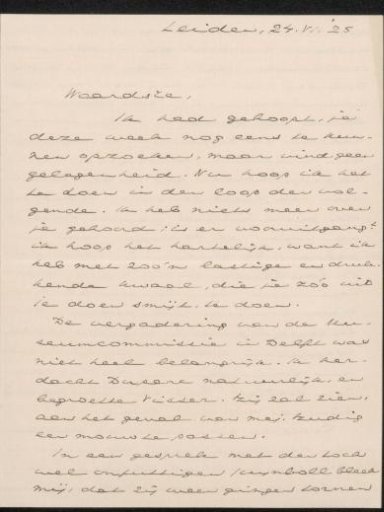 Leiden, 24.VI.'25
Waardste,
Ik had gehoopt, je
deze week nog eens te kun-
nen opzoeken, maar vind geen
gelegenheid. Nu hoop ik het
te doen in den loop der vol-
gende. Ik heb niets meer over
je gehoord: is er vooruitgang?
ik hoop het hartelijk, want ik
heb met zoo'n lastige en druk-
kende kwaal, die je zóó uit
je doen smijt, te doen.
De vergadering van de Mu-
seumcommissie in Delft was
niet heel belangrijk. Ik her-
dacht natuurlijk, en
begroette Visser. Hij zal zien,
aan het geval van mej.
een mouw te passen.
In een gesprek met den toch
wel Juynboll bleek
mij, dat zij weer gingen tornen